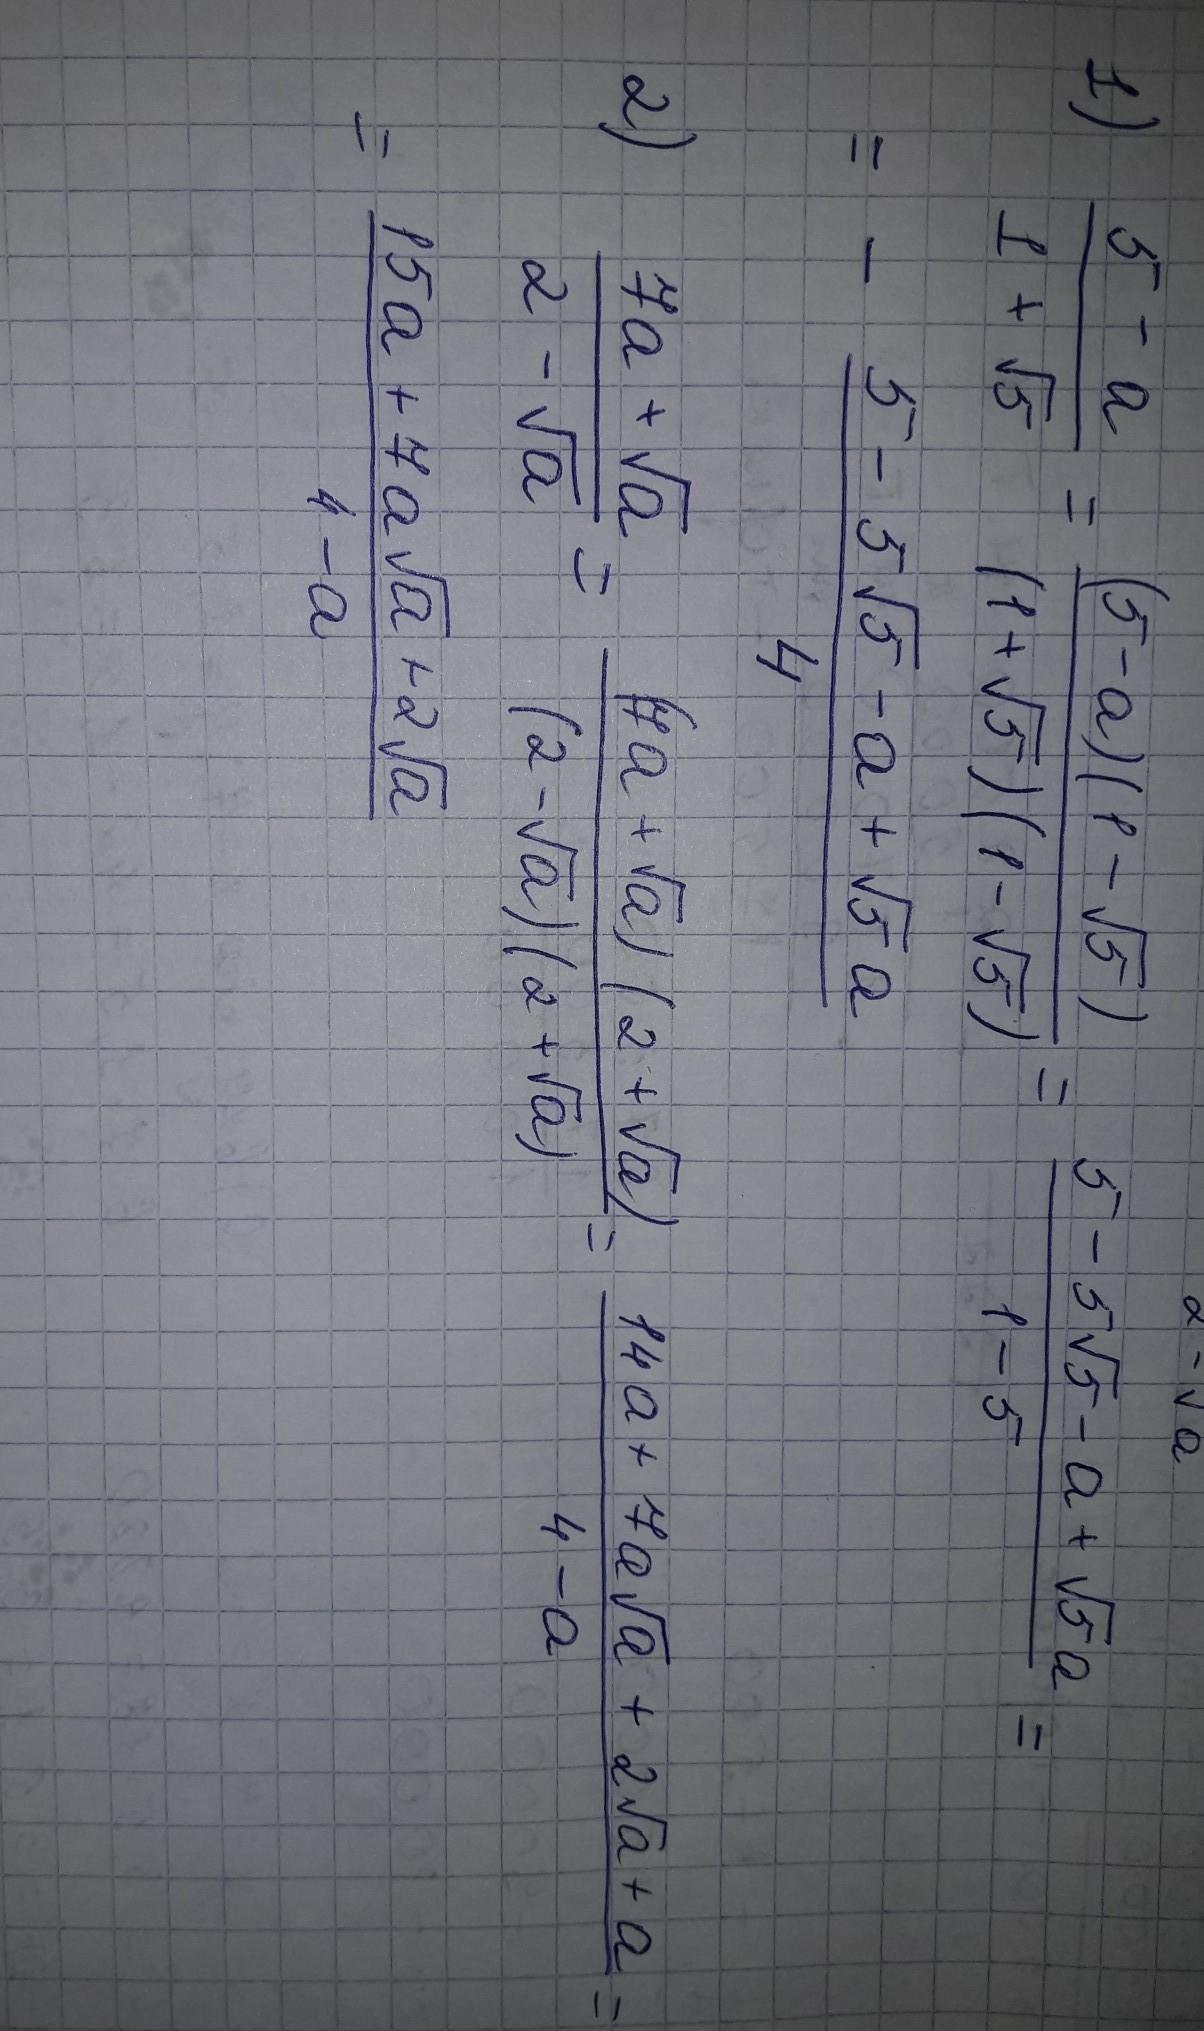 2-√a
1) (5-a)/(1+√5) = ((5-a)(1-√5))/((1+√5)(1-√5)) = (5-5√5-a+√5a)/(1-5) =
= - (5-5√5-a+√5a)/4
2) (7a+√a)/(2-√a) = ((7a+√a)(2+√a))/((2-√a)(2+√a)) = (14a+7a√a+2√a+a)/(4-a) =
= (15a+7a√a+2√a)/(4-a)